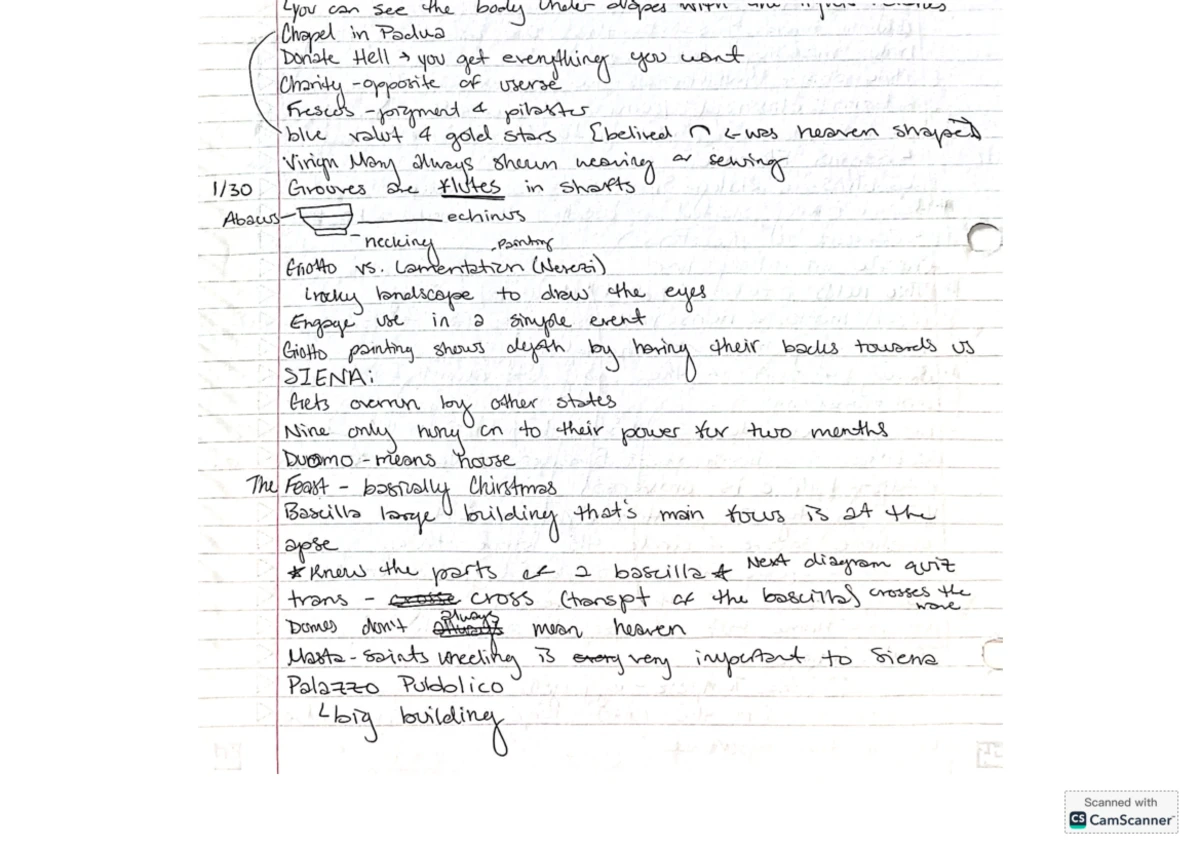 you can see the body under drapes with
Chapel in Padua
Donate Hell → you get everything you want
Charity - opposite of userse
Frescos - forgment & pilaster
blue valut & gold stars [belived ∩ ← was heaven shaped
Virign Mary always shown weaving or sewing
1/30 Grooves are flutes in shafts
Abacus echinus
necking
Giotto vs. Lamentation (Nerezi) painting
rocky landscape to draw the eyes
Engage use in a simple event
Giotto painting shows depth by having their backs towards us
SIENA:
Gets overrun by other states
Nine only hung on to their power for two months
Duomo - means house
The Feast - basically Chirstmas
Bascilla large building that's main focus is at the
apse
*Know the parts of a bascilla* Next diagram quiz
trans - cross (transpt of the bascilla) crosses the nave
Domes don't always mean heaven
Masta - Saints kneeling is very important to Siena
Palazzo Pubblico
big building
Scanned with
CS CamScanner